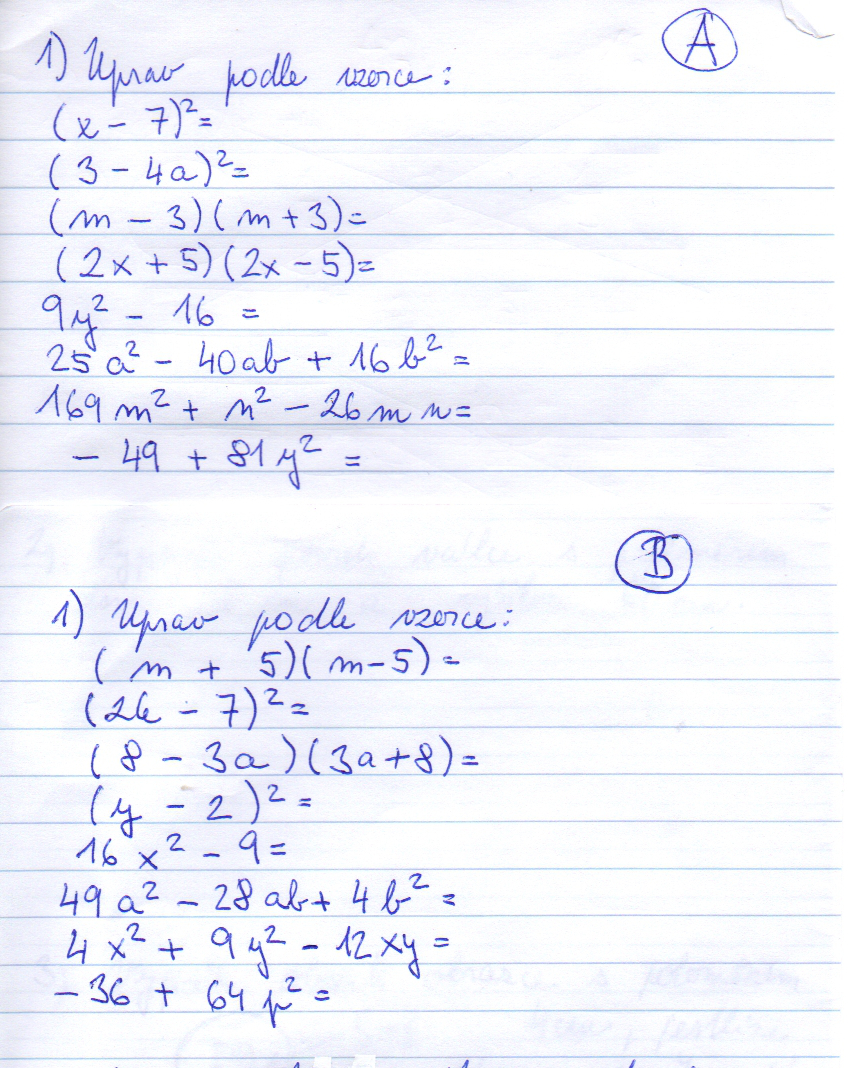 A
1) Uprav podle vzorce:
(x - 7)²=
(3 - 4a)²=
(m - 3)(m+3)=
(2x + 5)(2x - 5)=
9y² - 16 =
25a² - 40ab + 16b² =
169m² + n² - 26mn=
- 49 + 81y² =
B
1) Uprav podle vzorce:
(m + 5)(m-5)=
(2k - 7)²=
(8 - 3a)(3a+8)=
(y - 2)²=
16x² - 9=
49a² - 28ab + 4b² =
4x² + 9y² - 12xy=
-36 + 64p² =